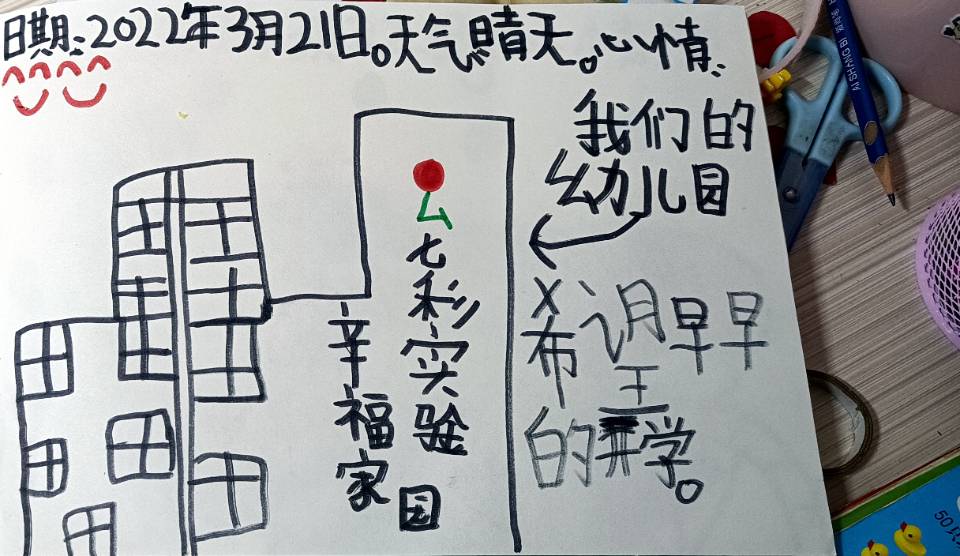 日期:2022年3月21日。天气:晴天。心情:
我们的
幼儿园
七彩实验
幸福家园
希望早早
的开学。
AI SHANG BI
50